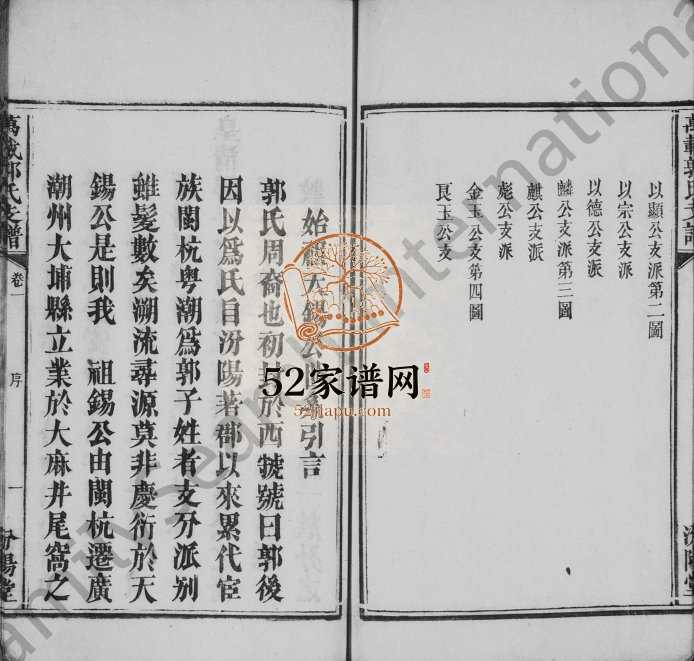 以顯公支派第二圖
以宗公支派
以德公支派
麟公支派第三圖
麒公支派
彪公支派
金玉公支第四圖
艮玉公支
汾陽堂
始祖天錫公引言
郭氏周裔也初於西虢號曰郭後
因以爲氏自汾陽著郡以來累代宦
族閩杭粤潮爲郭子姓者支分派别
雖髮數矣溯流尋源莫非慶衍於天
錫公是則我 祖錫公由閩杭遷廣
潮州大埔縣立業於大麻井尾窩之
萬載郭氏支譜
卷一
序
一
汾陽堂
52家谱网
52jiapu.com
FamilySearch International